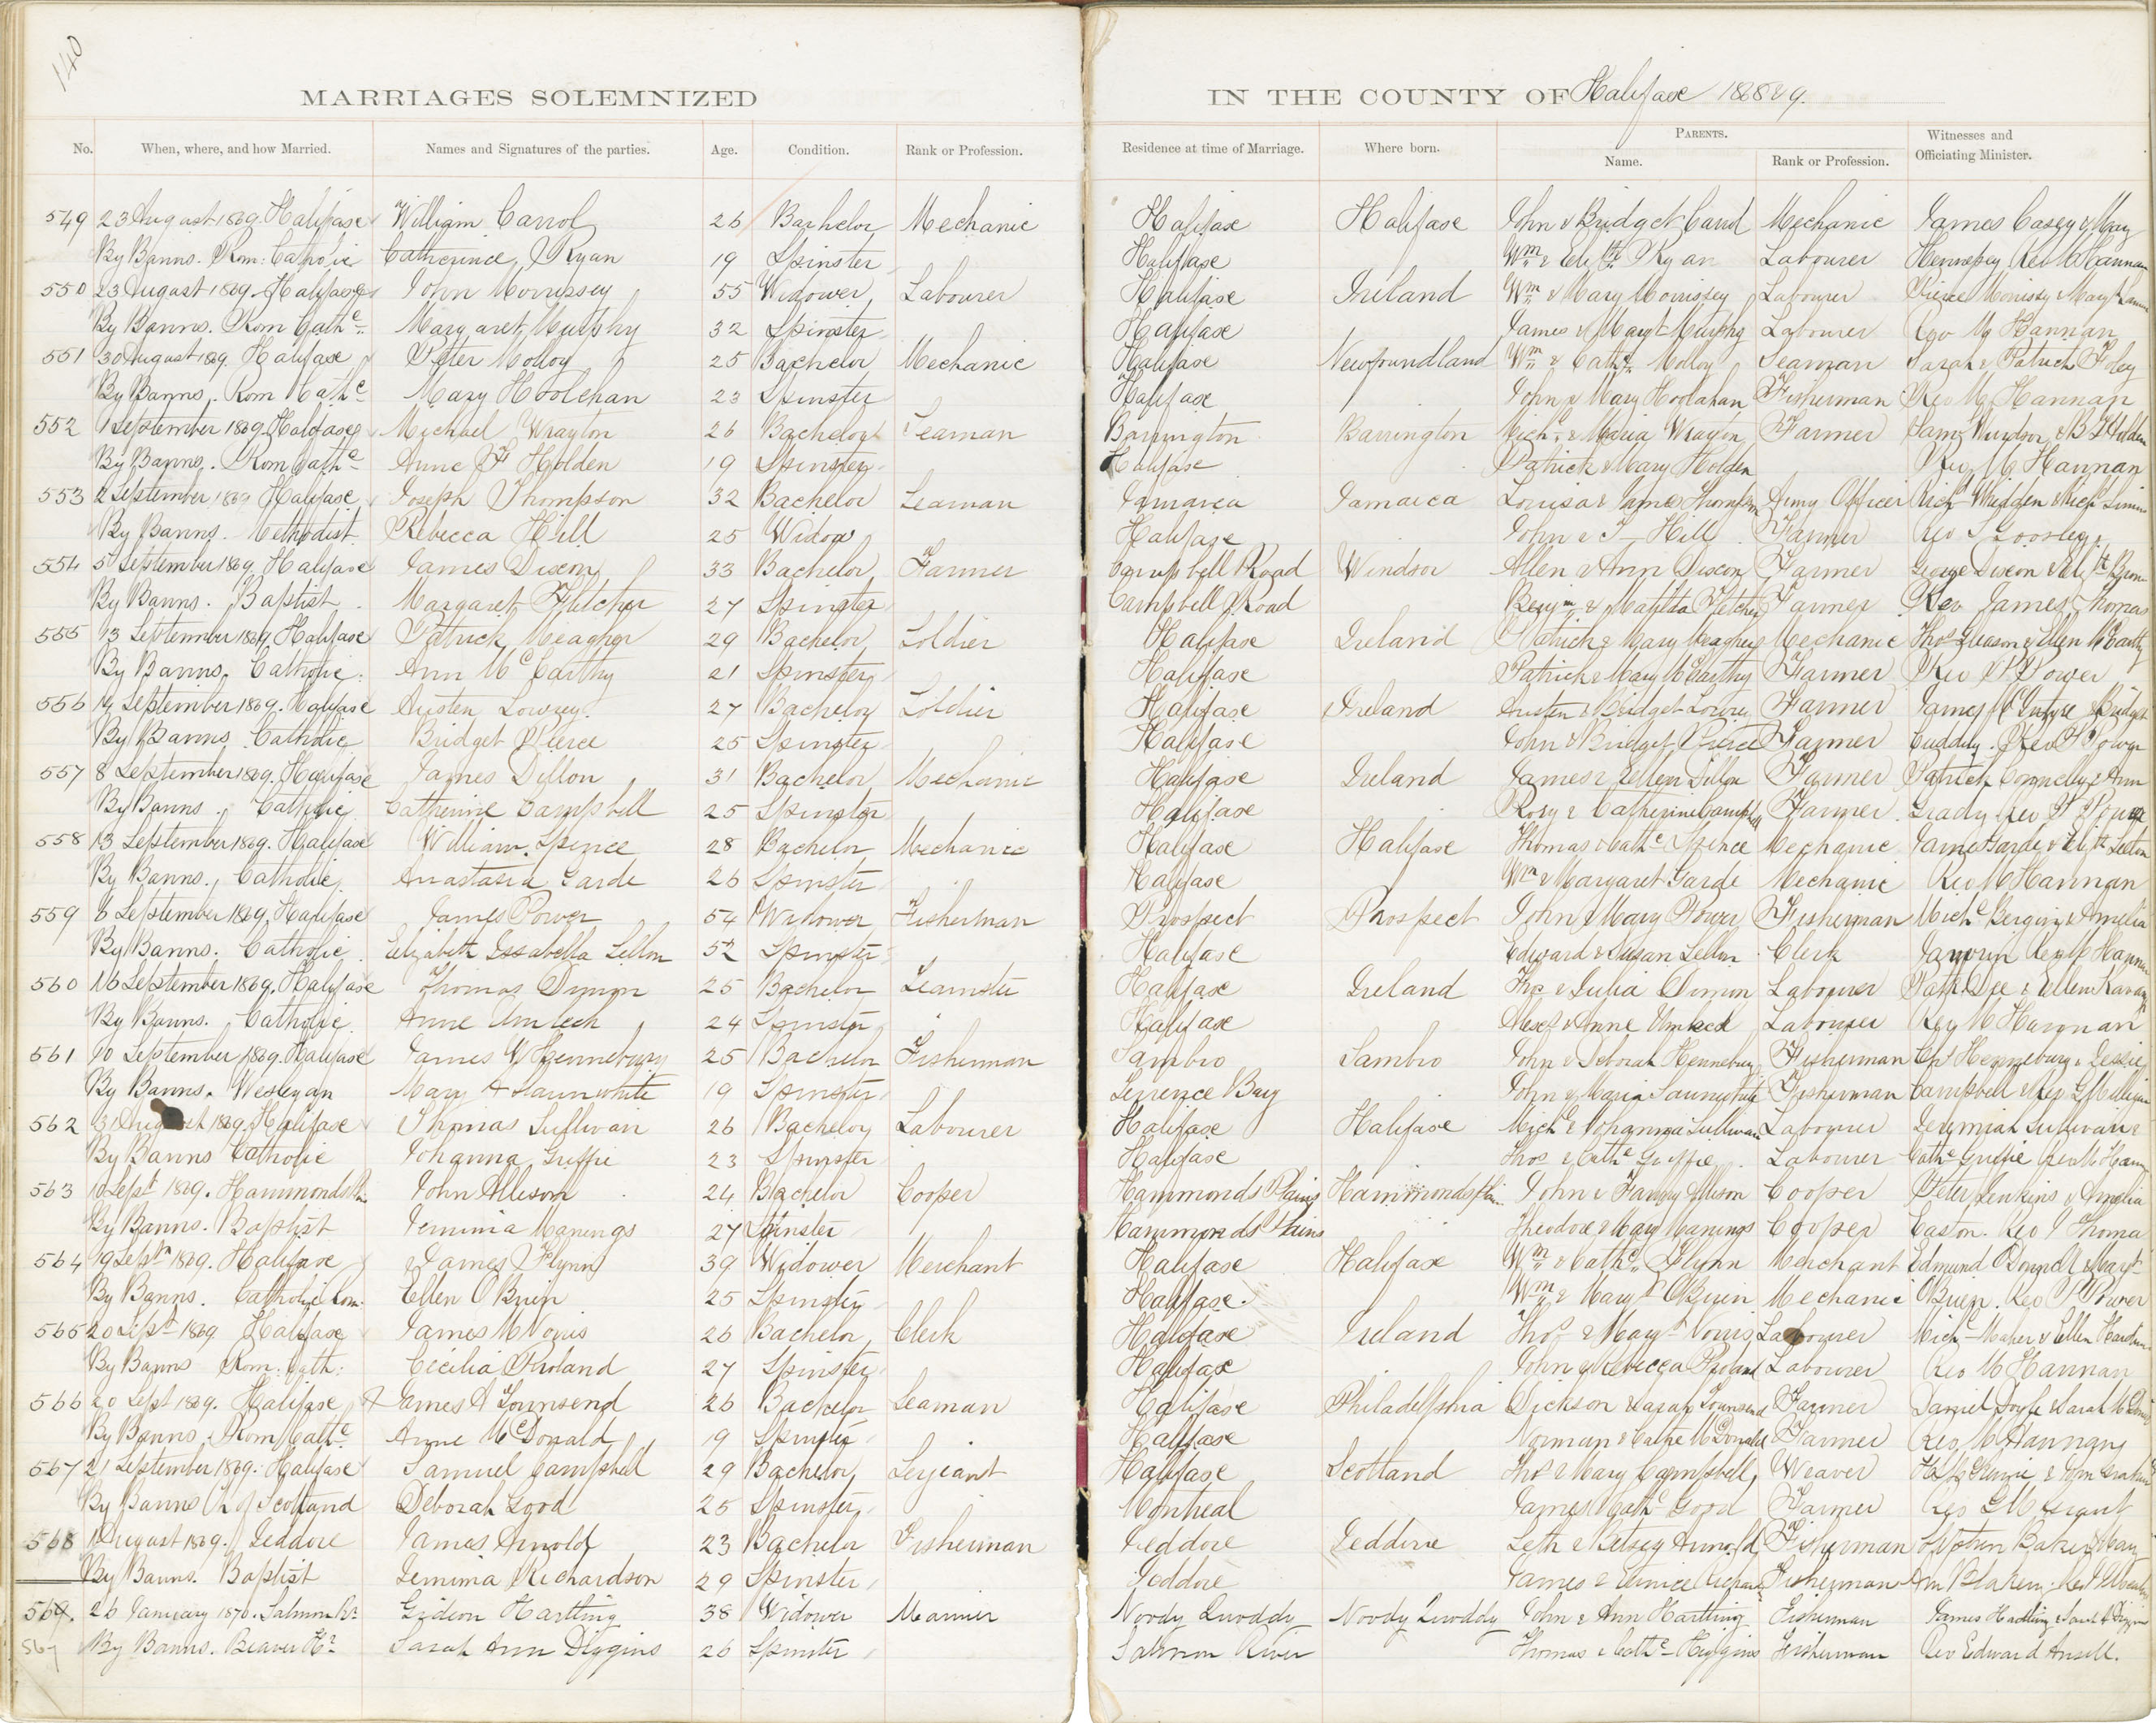 140
MARRIAGES SOLEMNIZED IN THE COUNTY OF Halifax 1868 & 9.
No. When, where, and how Married. Names and Signatures of the parties. Age. Condition. Rank or Profession. Residence at time of Marriage. Where born. PARENTS. Name. Rank or Profession. Witnesses and Officiating Minister.
549 23 August 1869 Halifax William Carrol 26 Bachelor Mechanic Halifax Halifax John & Bridget Carrol Mechanic James Casey & Mary
By Banns. Rom: Catholic Catherine Ryan 19 Spinster Halifax Wm & Elizth Ryan Labourer Hennesey Rev M Hannan
550 23 August 1869 Halifax John Morrissey 55 Widower Labourer Halifax Ireland Wm & Mary Morrissey Labourer Pierce Morrissy & Mary
By Banns. Rom Cathc Margaret Murphy 32 Spinster Halifax James & Margt Murphy Labourer Rev M Hannan
551 30 August 1869. Halifax Peter Molloy 25 Bachelor Mechanic Halifax Newfoundland Wm & Cathe Molloy Seaman Sarah & Patrick Foley
By Banns. Rom Cathc Mary Hoolehan 23 Spinster Halifax John & Mary Hoolahan Fisherman Rev M Hannan
552 1 September 1869 Halifax Michael Wrayton 26 Bachelor Seaman Barrington Barrington Michl & Maria Wrayton Farmer Jams Windsor & B J Holden
By Banns. Rom Cathc Anne F Holden 19 Spinster Halifax Patrick & Mary Holden Rev M Hannan
553 2 September 1869 Halifax Joseph Thompson 32 Bachelor Seaman Jamaica Jamaica Louisa & James Thompson Army Officer Richd Whidden & Michl
By Banns. Methodist. Rebecca Hill 25 Widow Halifax John & T— Hill Farmer Rev
554 5 September 1869. Halifax James Dixon 33 Bachelor Farmer Campbell Road Windsor Allen & Ann Dixon Farmer George Dixon & Elizth Brown
By Banns. Baptist Margaret Fletcher 27 Spinster Campbell Road Benjm & Matilda Fletcher Farmer Rev James Thomas
555 13 September 1869. Halifax Patrick Meagher 29 Bachelor Soldier Halifax Ireland Patrick & Mary Meagher Mechanic Thos Gleason & Ellen McCarthy
By Banns. Catholic. Ann McCarthy 21 Spinster Halifax Patrick & Mary McCarthy Farmer Rev P Power
556 14 September 1869. Halifax Austen Lowrey. 27 Bachelor Soldier Halifax Ireland Austen & Bridget Lowrey Farmer James McIntyre & Bridget
By Banns Catholic Bridget Pierce 25 Spinster Halifax John & Bridget Pierce Farmer Cuddihy. Rev P Power
557 8 September 1869. Halifax James Dillon 31 Bachelor Mechanic Halifax Ireland James & Ellen Dillon Farmer Patrick Connelly & Ann
By Banns. Catholic Catherine Campbell 25 Spinster Halifax Rory & Catherine Campbell Farmer Grady Rev P Power
558 13 September 1869. Halifax William Spence 28 Bachelor Mechanic Halifax Halifax Thomas & Cathe Spence Mechanic James Garde & Elizth
By Banns. Catholic. Anastasia Garde 26 Spinster Halifax Wm & Margaret Garde Mechanic Rev M Hannan
559 6 September 1869 Halifax James Power 54 Widower Fisherman Prospect Prospect John & Mary Power Fisherman Michl Bergin & Amelia
By Banns. Catholic Elizabeth Issabella Sellon 52 Spinster Halifax Edward & Susan Sellon Clerk Rev M Hannan
560 16 September 1869. Halifax Thomas Dimon 25 Bachelor Teamster Halifax Ireland Thos & Julia Dimon Labourer Patk Dee & Ellen
By Banns. Catholic Anne Umlech 24 Spinster Halifax & Anne Umlech Labourer Rev M Hannan
561 10 September 1869. Halifax James W Henneburry 25 Bachelor Fisherman Sambro Sambro John & Deborah Henneburry Fisherman Henneburry & Jessie
By Banns. Wesleyan Mary A Saunwhite 19 Spinster Terrence Bay John & Maria Saunwhite Fisherman Campbell & Rev G Milligan
562 31 August 1869 Halifax Thomas Sullivan 26 Bachelor Labourer Halifax Halifax Michl & Johannna Sullivan Labourer Jeremiah Sullivan &
By Banns Catholic Johanna Griffie 23 Spinster Halifax Thos & Cathe Griffie Labourer Cathe Griffie Rev M Hannan
563 10 Sept 1869. Hammonds Plns John Allison 24 Bachelor Cooper Hammonds Plains Hammonds Plains John & Fanny Allison Cooper Peter Jenkins & Amelia
By Banns. Baptist Jemima Manings 27 Spinster Hammonds Plains Theodore & Mary Manings Cooper Easton. Rev J Thomas
564 19 Septm 1869. Halifax James Flynn 39 Widower Merchant Halifax Halifax Wm & Cathe Flynn Merchant Edmund O'Donnell & Margt
By Banns. Catholic Rom. Ellen O'Brien 25 Spinster Halifax. Wm & Margt O'Brien Mechanic O'Brien. Rev P Power
565 20 Sept 1869 Halifax James M Voris 26 Bachelor Clerk Halifax Ireland Thos & Margt Voris Labourer Michl Maher & Ellen
By Banns Rom: Cath: Cecilia Ruland 27 Spinster Halifax John & Rebecca Ruland Labourer Rev M Hannan
566 20 Sept 1869. Halifax James A Townsend 26 Bachelor Seaman Halifax Philadelphia Dickson & Sarah Townsend Farmer Daniel Doyle & Sarah
By Banns. Rom Cathc Anne McDonald 19 Spinster Halifax Norman & Cathe McDonald Farmer Rev M Hannan
567 21 September 1869. Halifax Samuel Campbell 29 Bachelor Serjeant Halifax Scotland Thos & Mary Campbell Weaver & John Graham
By Banns Ch of Scotland Deborah Good 25 Spinster Montreal James & Cathe Good Farmer Rev G M Grant
568 1 August 1869. Jeddore James Arnold 23 Bachelor Fisherman Jeddore Jeddore Seth & Betsey Arnold Fisherman Stephen Baker & Mary
By Banns. Baptist Jemima Richardson 29 Spinster Jeddore James & Eunice Richardson Fisherman Ann Blakeny. Rev
569. 26 January 1870. Salmon Rr Gideon Hartling 38 Widower Mariner Noody Quoddy Noody Quoddy John & Ann Hartling Fisherman James Hartling & Sarah A Diggins
567 By Banns. Beaver Hr Sarah Ann Diggins 26 Spinster Salmon River Thomas & Cathe Higgins Fisherman Rev Edward Ansell.